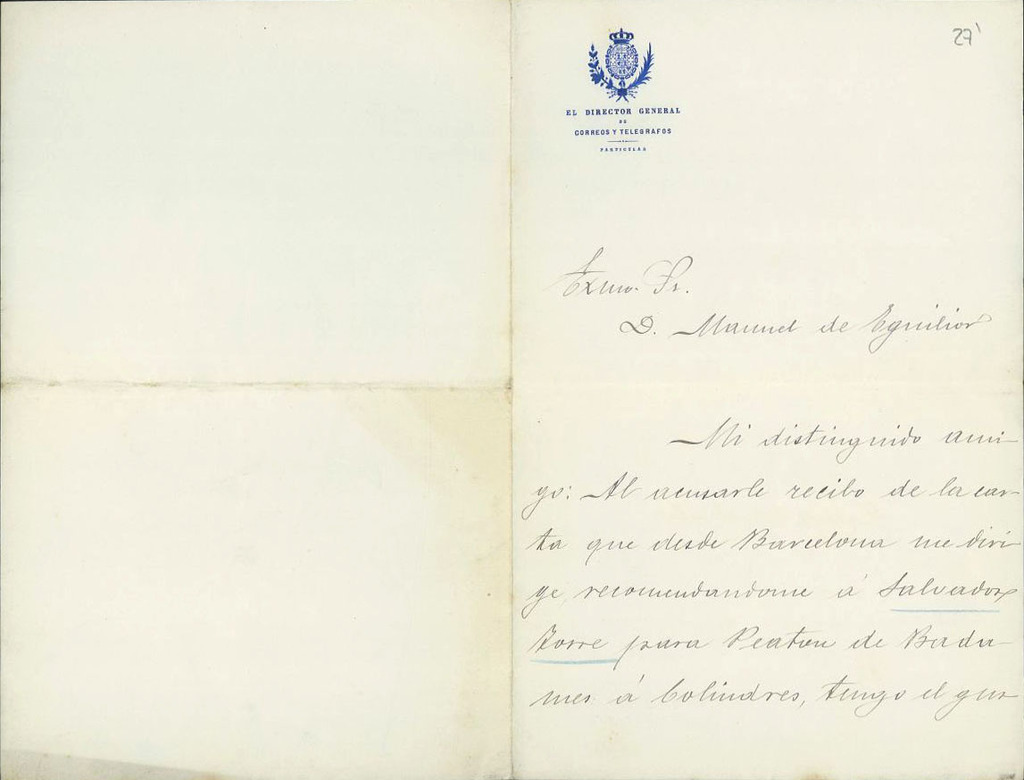 27
EL DIRECTOR GENERAL
DE
CORREOS Y TELEGRAFOS
PARTICULAR
Exmo. Sr.
D. Manuel de Eguilior
Mi distinguido ami-
go: Al acusarle recibo de la car-
ta que desde Barcelona me diri
ge, recomendandome á Salvador
Torre para Peaton de Bada-
mes á Colindres, tengo el gus-